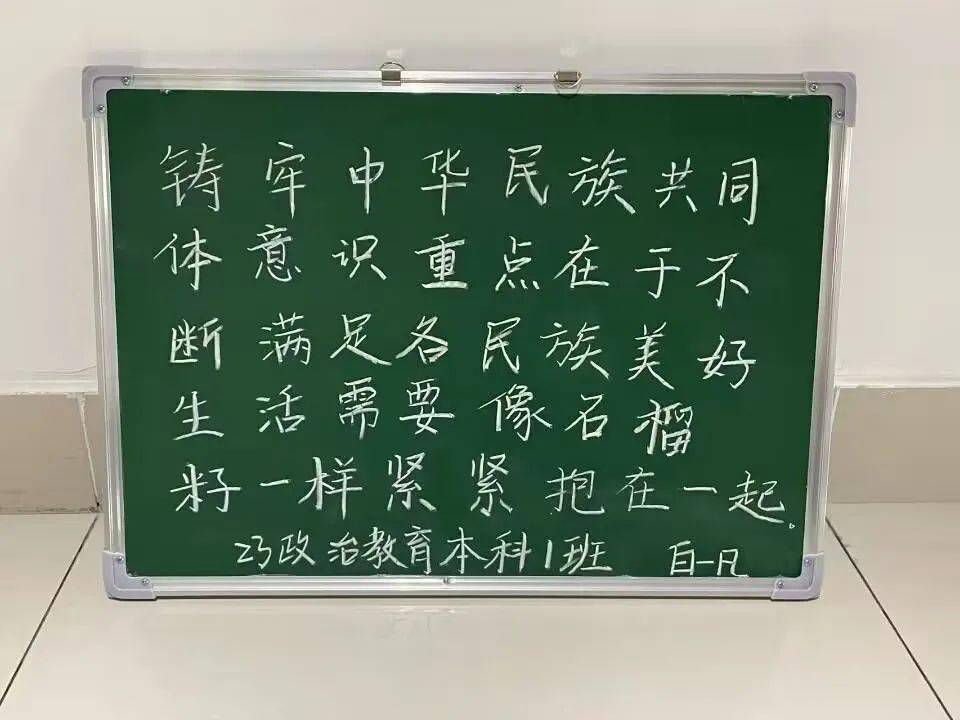 铸牢中华民族共同
体意识重点在于不
断满足各民族美好
生活需要像石榴
籽一样紧紧抱在一起。
23政治教育本科1班 白一凡